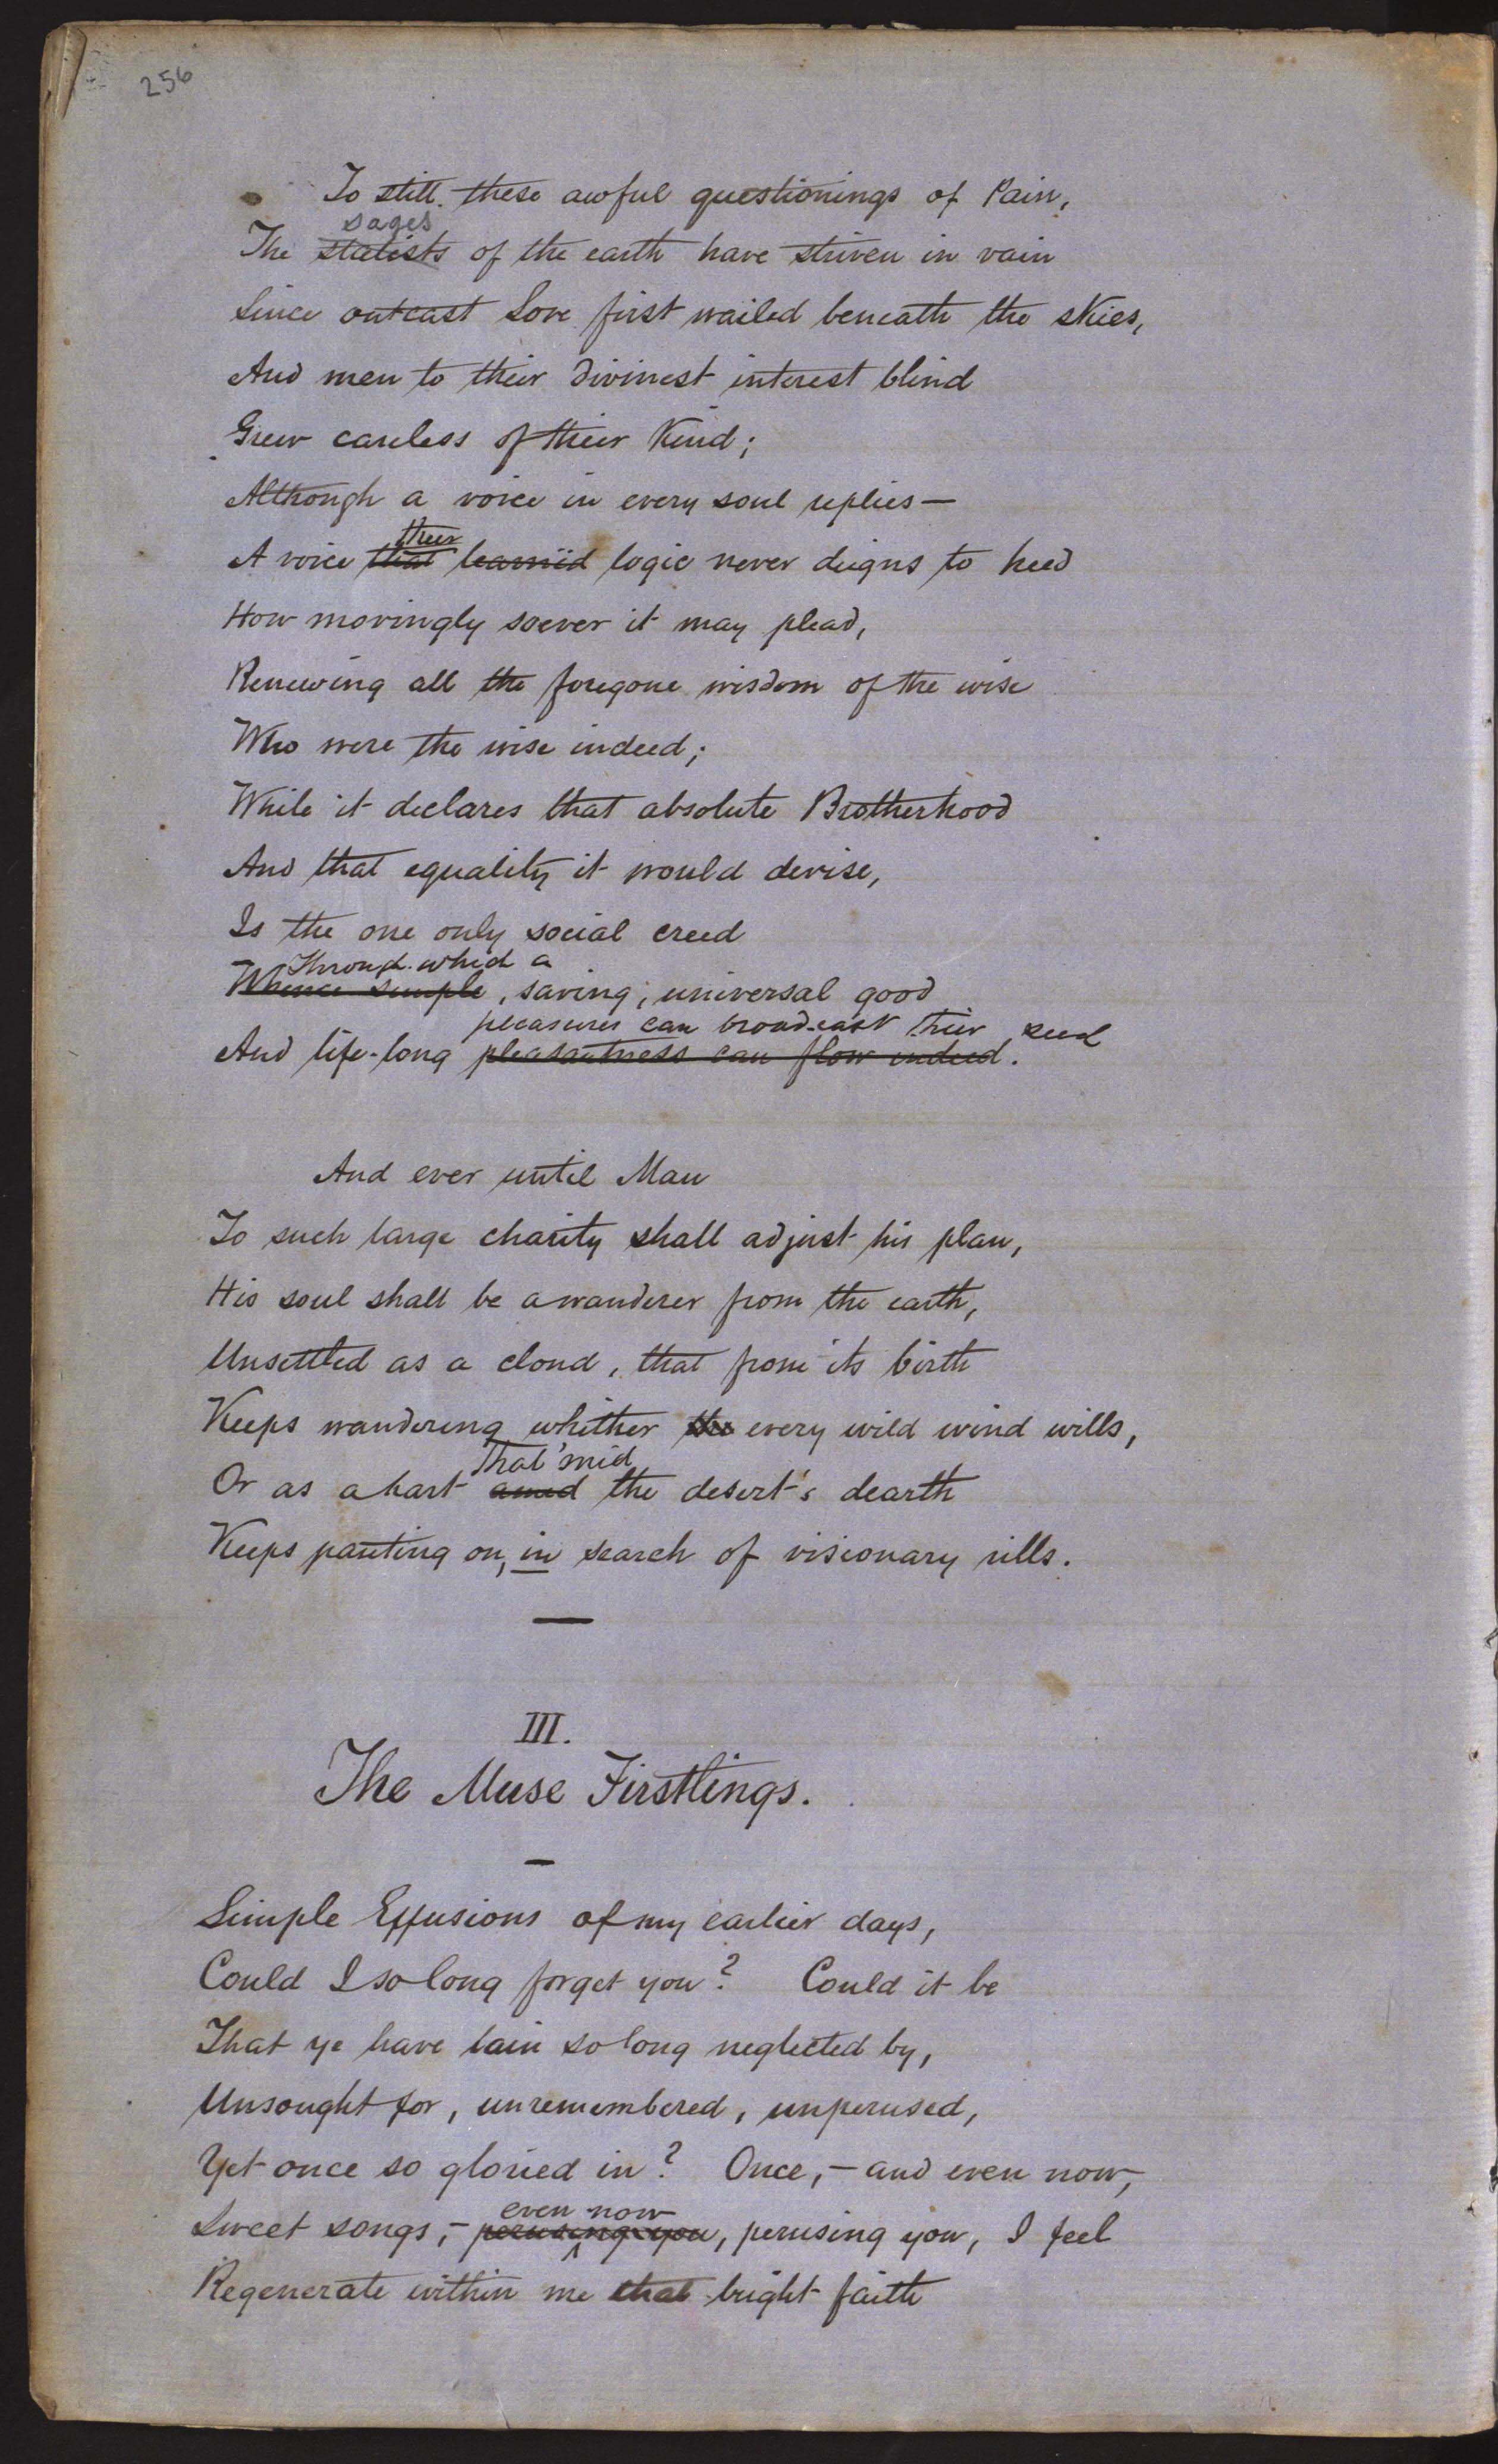 256
To still these awful questionings of Pain,
sages
The statists of the earth have striven in vain
Since outcast Love first wailed beneath the skies,
And men to their divinest interest blind
Grew careless of their Kind;
Although a voice in every soul replies—
their
A voice that learnëd logic never deigns to heed
How movingly soever it may plead,
Renewing all the foregone wisdom of the wise
Who were the wise indeed;
While it declares that absolute Brotherhood
And that equality it would devise,
Is the one only social creed
Through which a
Whence simple, saving, universal good
pleasures can broad-cast their seed
And life-long pleasantness can flow indeed.
And ever until Man
To such large charity shall adjust his plan,
His soul shall be a wanderer from the earth,
Unsettled as a cloud, that from its birth
Keeps wandering whither the every wild wind wills,
that 'mid
Or as a hart amid the desert's dearth
Keeps panting on, in search of visionary rills.
III.
The Muse Firstlings.
Simple Effusions of my earlier days,
Could I so long forget you? Could it be
That ye have lain so long neglected by,
Unsought for, unremembered, unperused,
Yet once so gloried in? Once,—and even now,
even now
Sweet songs,—perusing you, perusing you, I feel
Regenerate within me that bright faith